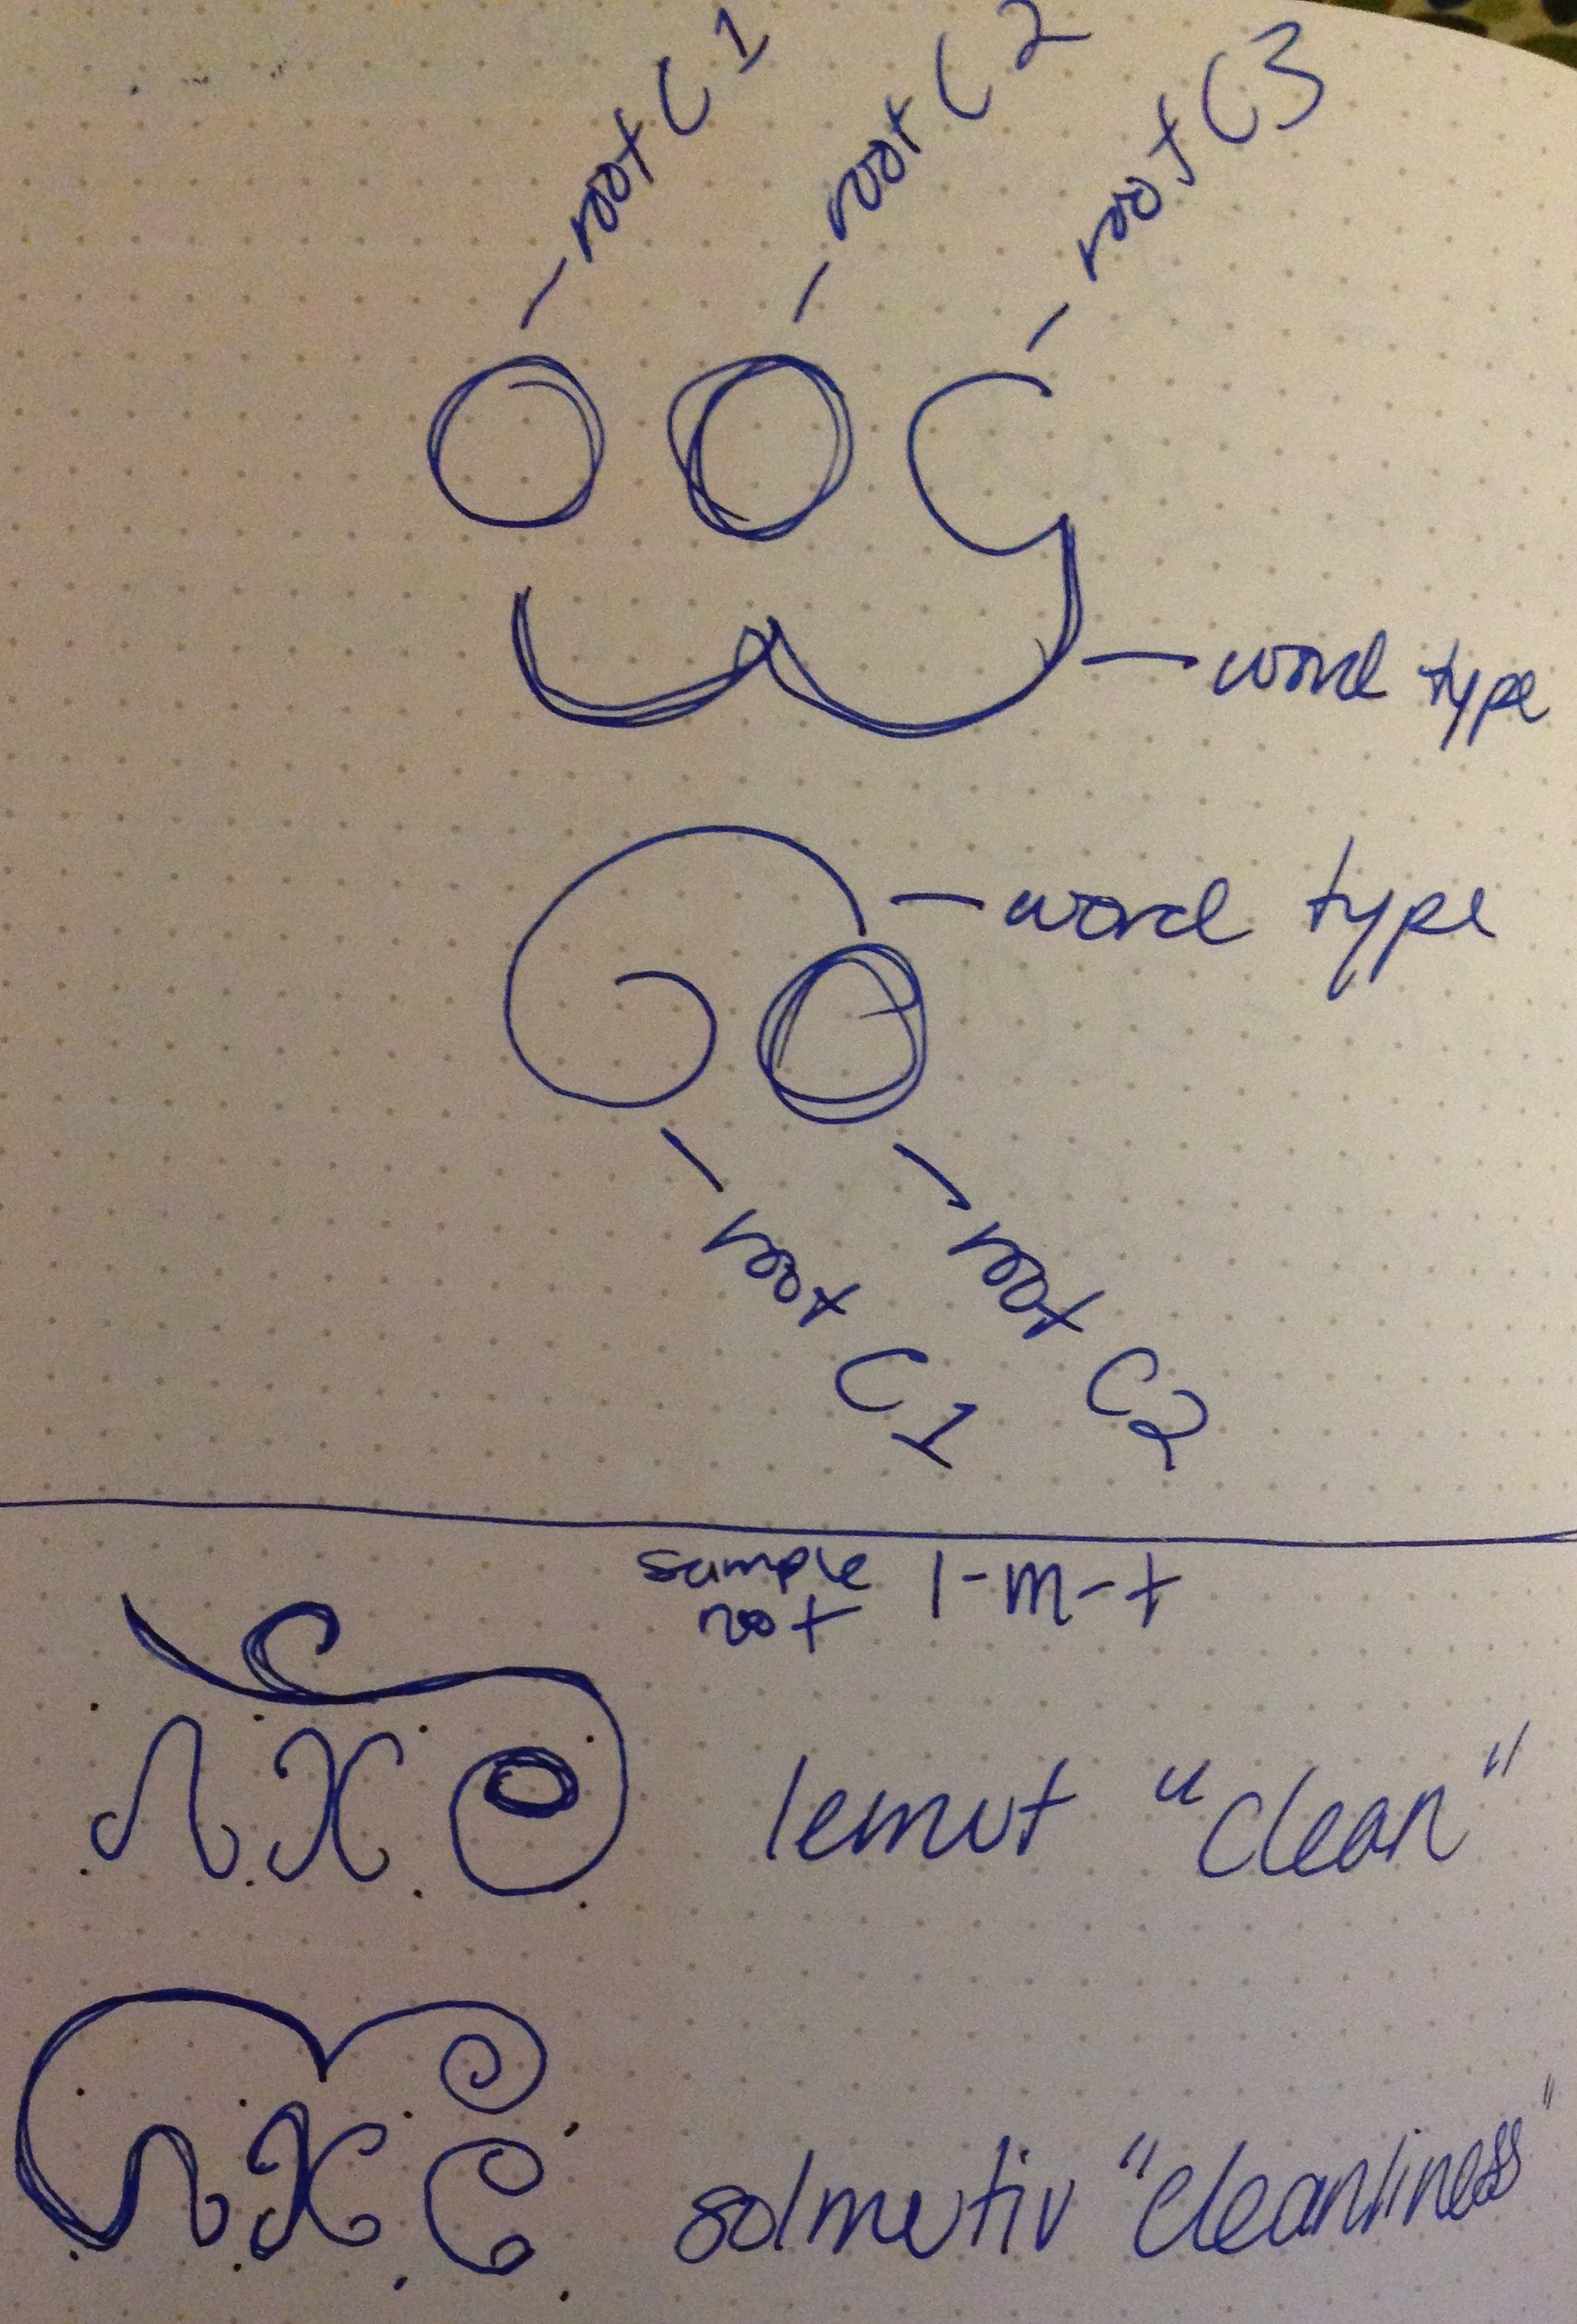 root C1
root C2
root C3
word type
word type
root C1
root C2
lemut "clean"
solmutiv "cleanliness"